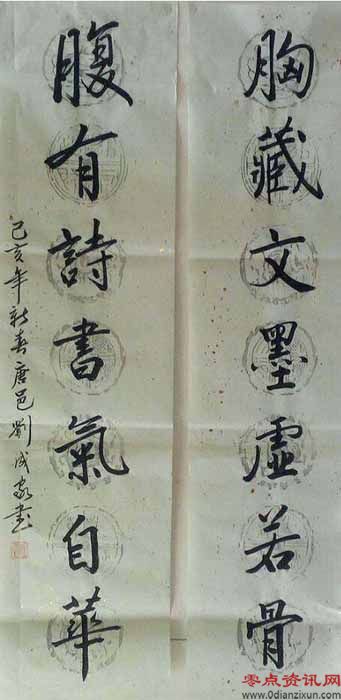 胸藏文墨虚若骨
腹有詩書氣自華
己亥年新春唐邑劉成家書
零点资讯网
www.0dianzixun.com